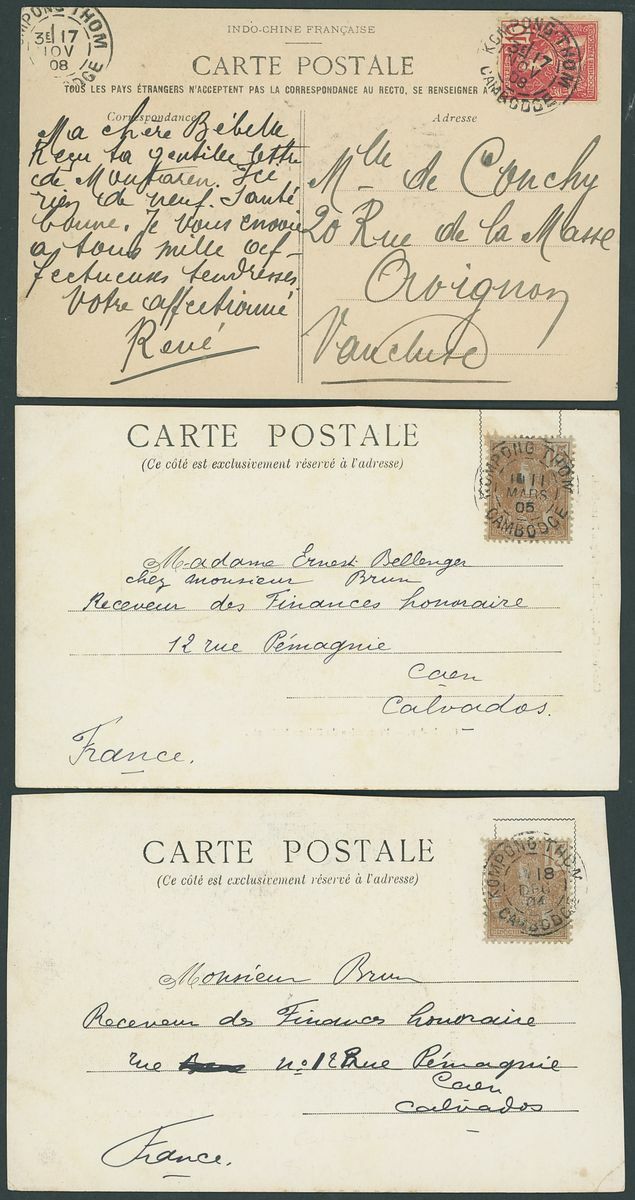 KOMPONG THOM
3E 17
NOV
08
CAMBODGE
INDO-CHINE FRANÇAISE
CARTE POSTALE
TOUS LES PAYS ÉTRANGERS N'ACCEPTENT PAS LA CORRESPONDANCE AU RECTO, SE RENSEIGNER A
KOMPONG-THOM
3E 17
NOV
08
CAMBODGE
Correspondance
Adresse
Ma chère Bébelle
Reçu ta gentille lettre
de
rien de neuf. Santé
bonne. Je vous envoie
a tous mille aff-
fectueuses tendresses.
Votre affectionné
René
Mlle de Conchy
20 Rue de la Masse
Avignon
Vaucluse
CARTE POSTALE
(Ce côté est exclusivement réservé à l'adresse)
KOMPONG THOM
11
MARS
05
CAMBODGE
Madame Ernest Bellenger
chez monsieur Brun
Receveur des Finances honoraire
12 rue Pémagnie
Caen
Calvados.
France.
CARTE POSTALE
(Ce côté est exclusivement réservé à l'adresse)
KOMPONG THOM
18
DEC
04
CAMBODGE
Monsieur Brun
Receveur des Finances honoraire
rue no 12 Rue Pémagnie
Caen
Calvados
France.